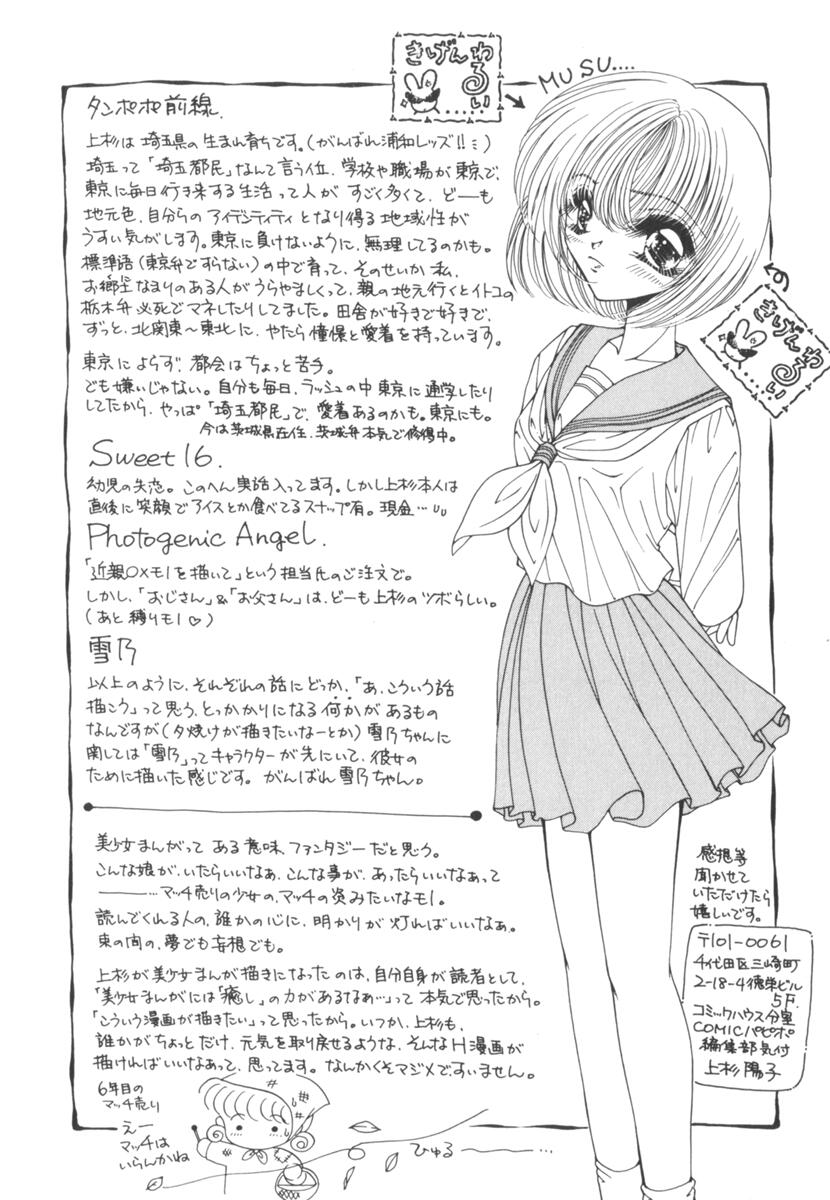 きげんわるい……
MUSU....
タンポポ前線.
上杉は埼玉県の生まれ育ちです。(がんばれ浦和レッズ!!ミ)
埼玉って「埼玉都民」なんて言う位、学校や職場が東京で、
東京に毎日行き来する生活って人がすごく多くて、どーも
地元色、自分らのアイデンティティとなり得る地域性が
うすい気がします。東京に負けないように、無理してるのかも。
標準語(東京弁ですらない)の中で育って、そのせいか私、
お郷土なまりのある人がうらやましくって、親の地元行くとイトコの
栃木弁必死でマネしたりしてました。田舎が好きで好きで、
ずっと、北関東〜東北に、やたら憧憬と愛着を持っています。
東京によらず、都会はちょっと苦手。
でも嫌いじゃない。自分も毎日、ラッシュの中東京に通学したり
してたから、やっぱ「埼玉都民」で、愛着あるのかも。東京にも。
今は茨城県在住、茨城弁本気で修得中。
Sweet 16.
幼児の失恋。このへん実話入ってます。しかし上杉本人は
直後に笑顔でアイスとか食べてるスナップ有。現金…
Photogenic Angel.
「近親○×モノを描いて」という担当氏のご注文で。
しかし、「おじさん」&「お父さん」は、どーも上杉のツボらしい。
(あと縛りモノ♡)
雪乃
以上のように、それぞれの話にどっか、「あ、こういう話
描こう」って思う、とっかかりになる何かがあるもの
なんですが(夕焼けが描きたいなーとか)雪乃ちゃんに
関しては「雪乃」ってキャラクターが先にいて、彼女の
ために描いた感じです。がんばれ雪乃ちゃん。
美少女まんがって ある意味、ファンタジーだと思う。
こんな娘が、いたらいいなぁ、こんな事が、あったらいいなぁって
―――…マッチ売りの少女の、マッチの炎みたいなモノ。
読んでくれる人の、誰かの心に、明かりが灯ればいいなぁ。
束の間の、夢でも妄想でも。
上杉が美少女まんが描きになったのは、自分自身が読者として、
「美少女まんがには「癒し」の力があるなぁ…」って本気で思ったから。
「こういう漫画が描きたい」って思ったから。いつか、上杉も、
誰かがちょっとだけ、元気を取り戻せるような、そんなH漫画が
描ければいいなあって、思ってます。なんかくそマジメですいません。
6年目の
マッチ売り
えー
マッチは
いらんかね
ひゅる――…
きげんわるい……
感想等
聞かせて
いただけたら
嬉しいです。
〒101-0061
千代田区三崎町
2-18-4徳栄ビル
5F.
コミックハウス分室
COMICパピポ
編集部気付
上杉陽子